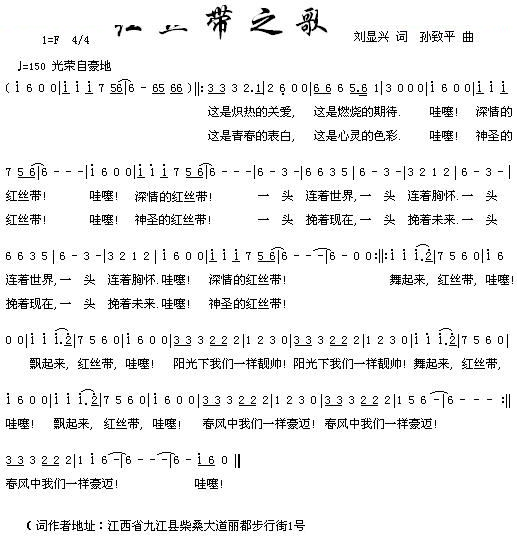 红丝带之歌
1=F 4/4 刘显兴 词 孙致平 曲
♩=150 光荣自豪地
( i 6 0 0 | i i i i 7 5 6 | 6 - 6 5 6 6 ) ‖: 3 3 3 2. 1 | 2 6 0 0 | 6 6 6 5. 6 | 3 0 0 0 | i 6 0 0 | i i i i
这是炽热的关爱, 这是燃烧的期待. 哇噻! 深情的
这是青春的表白, 这是心灵的色彩. 哇噻! 神圣的
7 5 6 | 6 - - - | i 6 0 0 | i i i i 7 5 6 | 6 - - - | 6 - 3 - | 6 6 3 5 | 6 - 3 - | 3 2 1 2 | 6 - 3 -
红丝带! 哇噻! 深情的红丝带! 一 头 连着世界,一 头 连着胸怀.一 头
红丝带! 哇噻! 神圣的红丝带! 一 头 挽着现在,一 头 挽着未来.一 头
6 6 3 5 | 6 - 3 - | 3 2 1 2 | i 6 0 0 | i i i i 7 5 6 | 6 - - - | 6 - 0 0 :‖: i i i. 2 | 7 5 6 0 | i 6
连着世界,一 头 连着胸怀.哇噻! 深情的红丝带! 舞起来, 红丝带, 哇
挽着现在,一 头 挽着未来.哇噻! 神圣的红丝带!
0 0 | i i i. 2 | 7 5 6 0 | i 6 0 0 | 3 3 3 2 2 2 | 1 2 3 0 | 3 3 3 2 2 2 | 1 2 3 0 | i i i. 2 | 7 5 6 0
飘起来, 红丝带, 哇噻! 阳光下我们一样靓帅! 阳光下我们一样靓帅! 舞起来, 红丝带,
i 6 0 0 | i i i. 2 | 7 5 6 0 | i 6 0 0 | 3 3 3 2 2 2 | 1 2 3 0 | 3 3 3 2 2 2 | 1 5 6 - | 6 - - - :‖
哇噻! 飘起来, 红丝带, 哇噻! 春风中我们一样豪迈! 春风中我们一样豪迈!
3 3 3 2 2 2 | 1 i 6 - | 6 - - - | 6 - i 6 | 0 ‖
春风中我们一样豪迈! 哇噻!
( 词作者地址: 江西省九江县柴桑大道丽都步行街1号